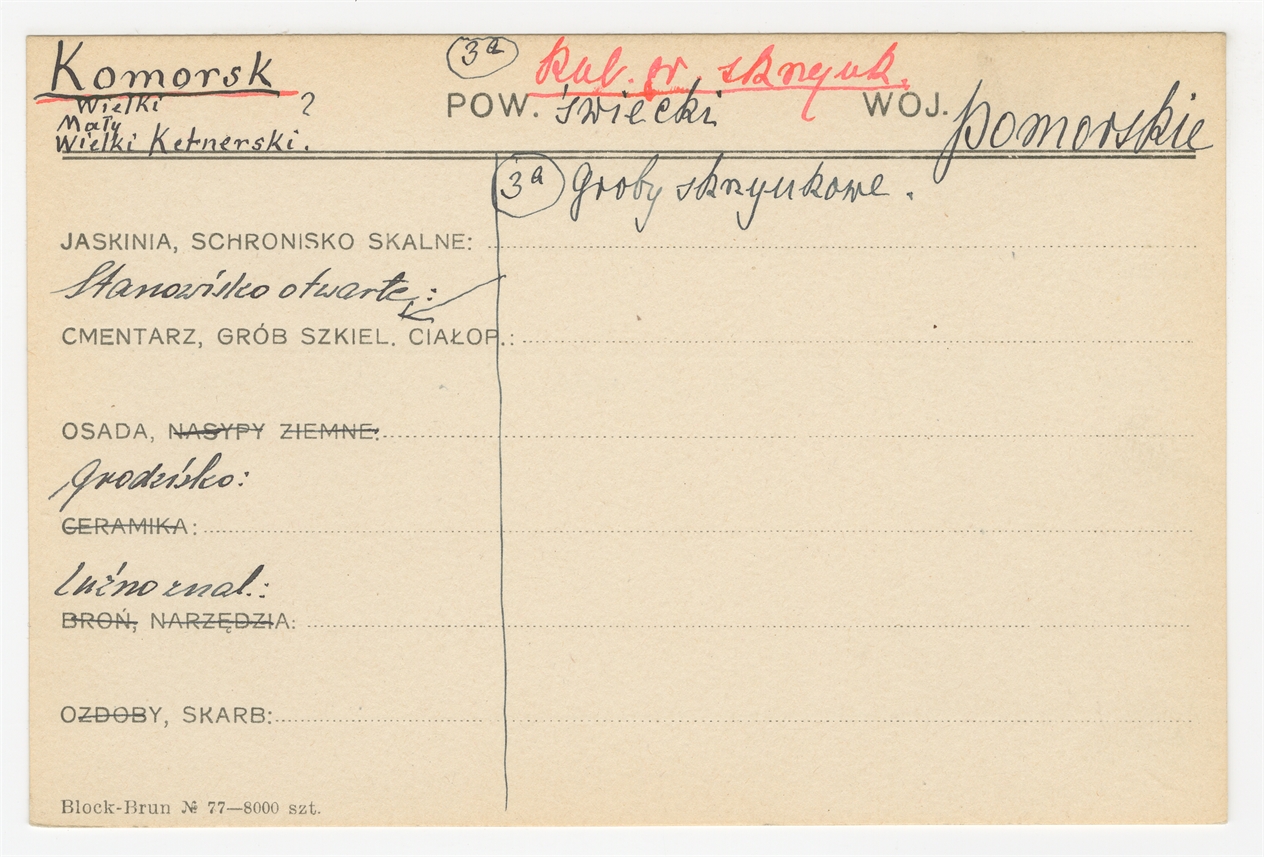 Komorsk
Wielki ?
Mały
Wielki Ketnerski.
3a Kul. gr. skrzynk.
POW. świecki WOJ. pomorskie
3a Groby skrzynkowe.
JASKINIA, SCHRONISKO SKALNE:
Stanowisko otwarte:
CMENTARZ, GRÓB SZKIEL. CIAŁOP.:
OSADA, NASYPY ZIEMNE:
Grodzisko:
CERAMIKA:
Luźno znal.:
BROŃ, NARZĘDZIA:
OZDOBY, SKARB:
Block-Brun № 77—8000 szt.